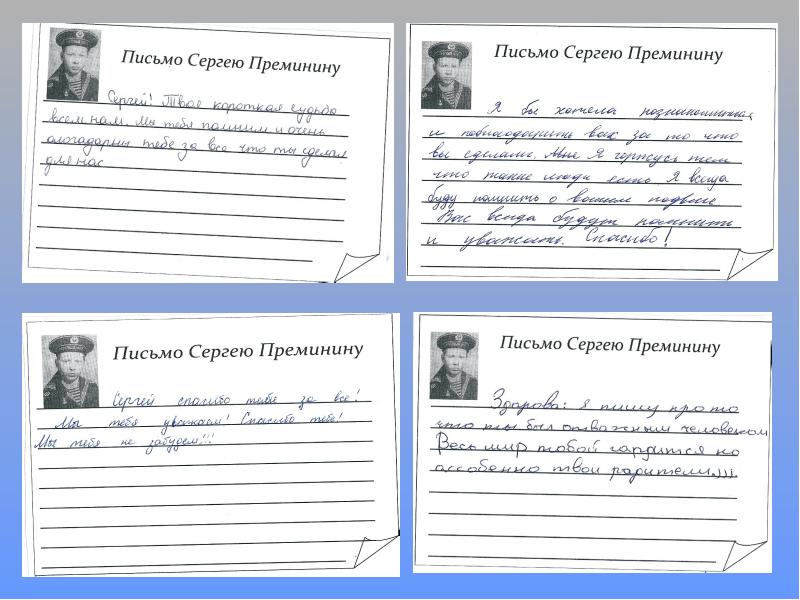 Письмо Сергею Преминину
Сергей! Твоя короткая судьба
всем нам. Мы тебя помним и очень
благодарны тебе за все что ты сделал
для нас
Письмо Сергею Преминину
Я бы хотела
и поблагодарить вас за то что
вы сделали. Мне Я горжусь тем
что такие люди есть Я всегда
буду помнить о вашем подвиге
Вас всегда будут помнить
и уважать. Спасибо!
Письмо Сергею Преминину
Сергей спасибо тебе за все!
Мы тебя уважаем! Спасибо тебе!
Мы тебя не забудем!!!
Письмо Сергею Преминину
Здорова: я пишу про то
что ты был отважным человеком
Весь мир тобой гардится но
ассобенно твои радители))))